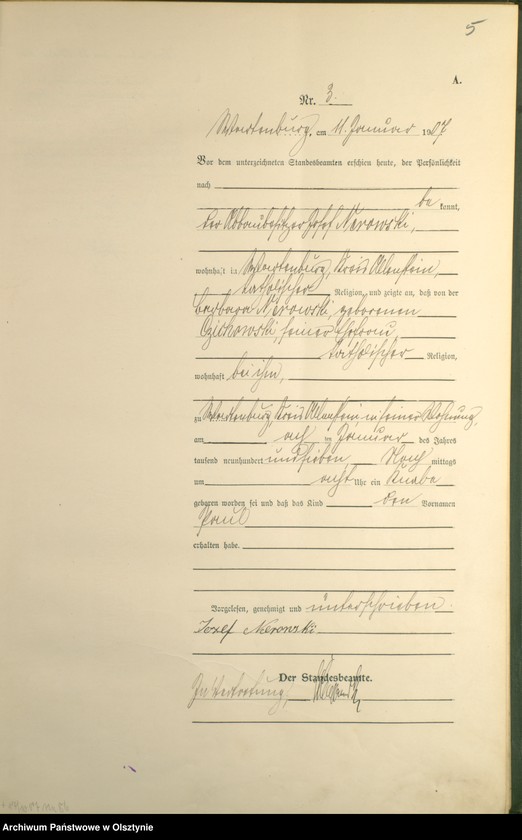 5
A.
Nr. 3.
Wartenburg, am 11. Januar 1907
Vor dem unterzeichneten Standesbeamten erschien heute, der Persönlichkeit
nach
be kannt,
der Abbaubesitzer Josef Nerowski,
wohnhaft in Wartenburg, Kreis Allenstein,
katholischer Religion, und zeigte an, daß von der
Barbara Nerowski, geborenen
Czichowski, seiner Ehefrau,
katholischer Religion,
wohnhaft bei ihm,
zu Wartenburg, Kreis Allenstein in seiner Wohnung,
am acht en Januar des Jahres
tausend neunhundert und sieben Nach mittags
um acht Uhr ein Knabe
geboren worden sei und daß das Kind den Vornamen
Paul
erhalten habe.
Vorgelesen, genehmigt und unterschrieben.
Jozef Nerowski
Der Standesbeamte.
In Vertretung,
Archiwum Państwowe w Olsztynie